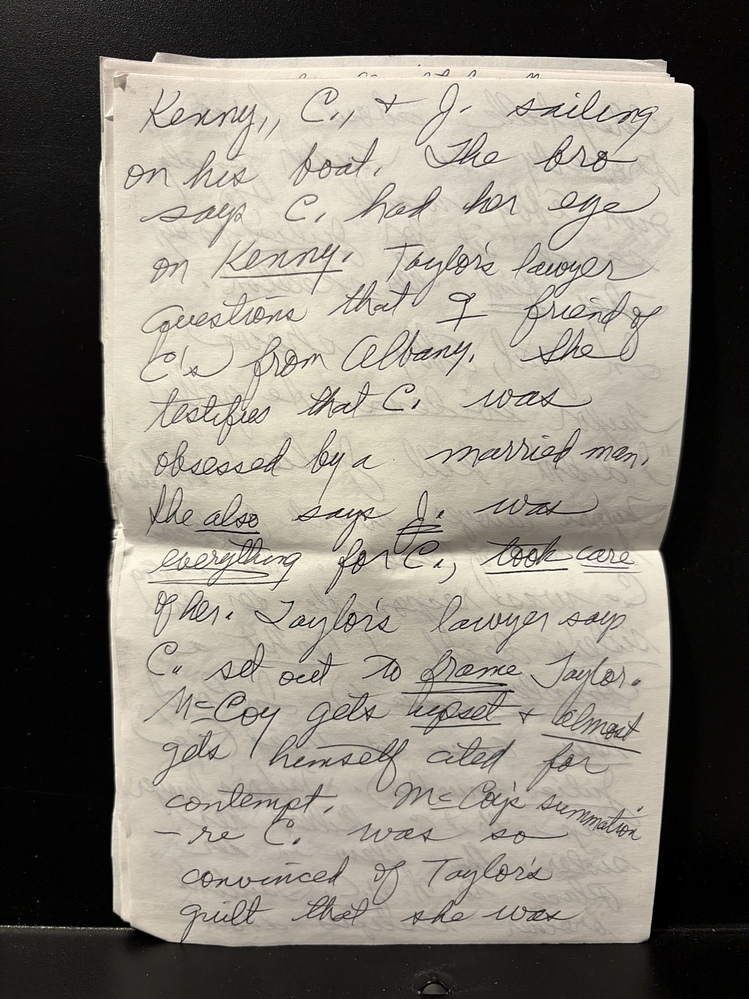 Kenny,, C., + J. sailing
on his boat. The bro
says C. had her eye
on Kenny. Taylor's lawyer
questions that ♀ friend of
C's from Albany. She
testifies that C. was
obsessed by a married man.
She also says J. was
everything for C., took care
of her. Taylor's lawyer says
C.. set out to frame Taylor.
McCoy gets upset + almost
gets himself cited for
contempt. McCoy's summation
– re C. was so
convinced of Taylor's
guilt that she was